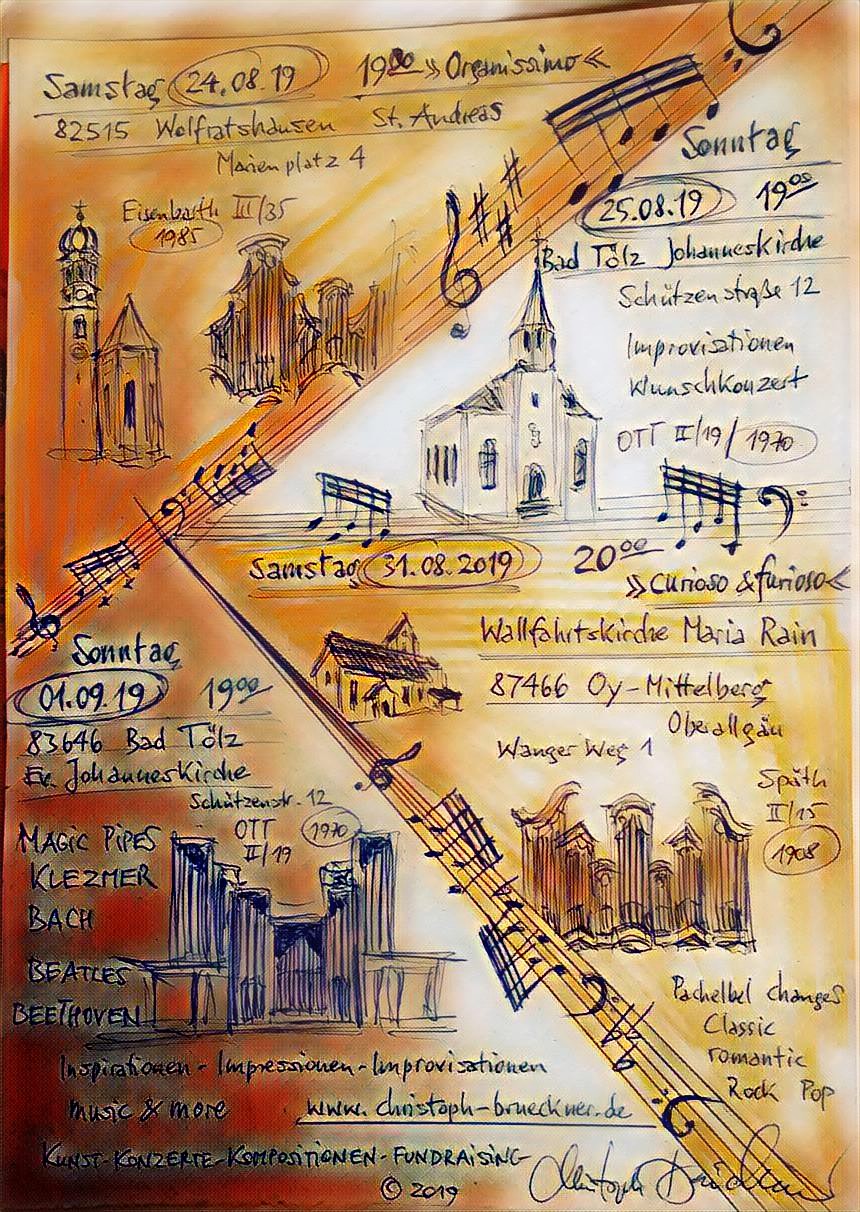 Samstag 24.08.19 19⁰⁰ »Organissimo«
82515 Wolfratshausen St. Andreas
Marienplatz 4
Eisenbarth III/35
1985
Sonntag
25.08.19 19⁰⁰
Bad Tölz Johanneskirche
Schützenstraße 12
Improvisationen
Wunschkonzert
OTT II/19/1970
Samstag 31.08.2019 20⁰⁰
»Curioso & furioso«
Wallfahrtskirche Maria Rain
87466 Oy-Mittelberg
Oberallgäu
Wanger Weg 1
Späth
II/15
1908
Pachelbel changes
Classic
romantic
Rock Pop
Sonntag
01.09.19 19⁰⁰
83646 Bad Tölz
Ev. Johanneskirche
Schützenstr. 12
OTT 1970
II/19
MAGIC PIPES
KLEZMER
BACH
BEATLES
BEETHOVEN
Inspirationen - Impressionen - Improvisationen
music & more www.christoph-brueckner.de
KUNST-KONZERTE-KOMPOSITIONEN-FUNDRAISING
© 2019